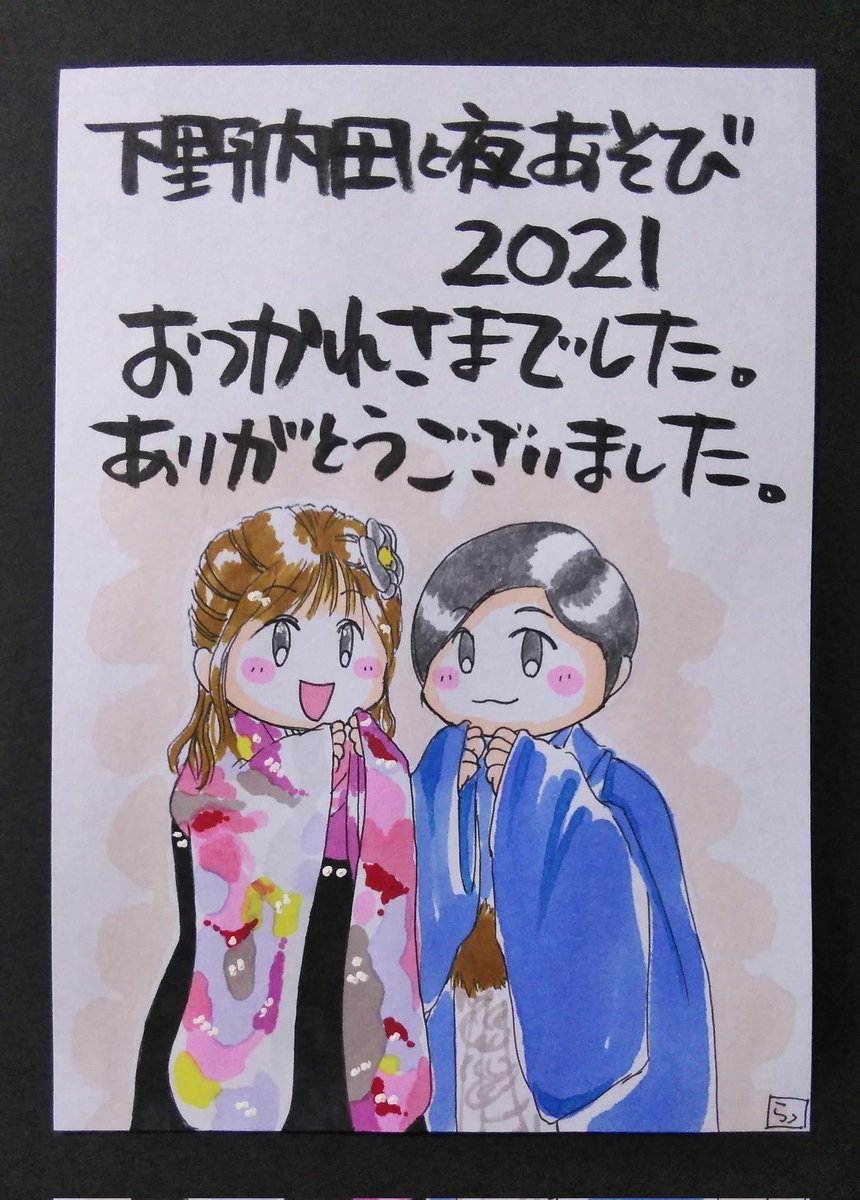 下野内田と夜あそび
2021
おつかれさまでした。
ありがとうございました。
らっ